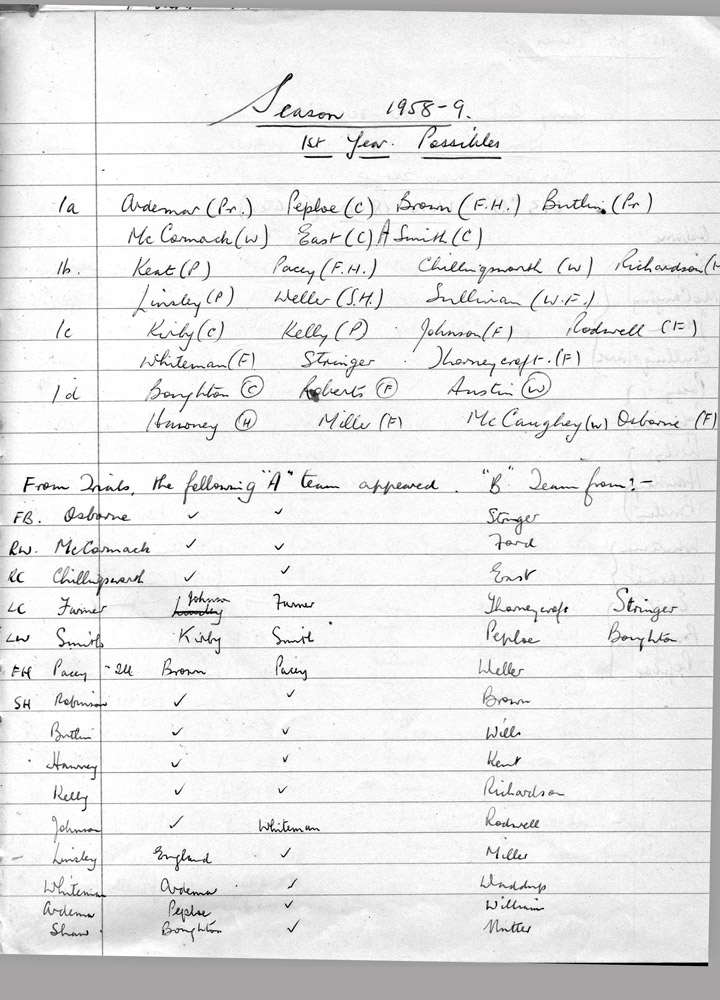 Season 1958-9.
1st Year. Possibles
1a Ardemar (Pr.) Peploe (C) Brown (F.H.) Butlin (Pr)
McCormack (W) East (C) A Smith (C)
1b. Kent (P) Pacey (F.H.) Chillingsworth (W) Richardson (H
Linsley (P) Weller (S.H.) Sullivan (W.F.)
1c Kirby (C) Kelly (P) Johnson (F) Rodwell (F)
Whiteman (F) Stringer Thorneycroft. (F)
1d Boughton (C) Roberts (F) Austin (W)
Hawney (H) Miller (F) McCaughey (W) Osborne (F)
From Trials, the following "A" team appeared. "B" Team from:-
FB. Osborne ✓ ✓ Stringer
RW. McCormack ✓ ✓ Ford
RC Chillingsworth ✓ ✓ East
LC Farmer Johnson Farmer Thorneycroft Stringer
LW Smith Kirby Smith Peploe Boughton
FH Pacey Brown Pacey Weller
SH Robinson ✓ ✓ Brown
Butlin ✓ ✓ Wills
Hawney ✓ ✓ Kent
Kelly ✓ ✓ Richardson
Johnson ✓ Whiteman Rodwell
Linsley England ✓ Miller
Whiteman Ardema ✓ Waddup
Ardema Peploe ✓ William
Shaw Boughton ✓ Nutter